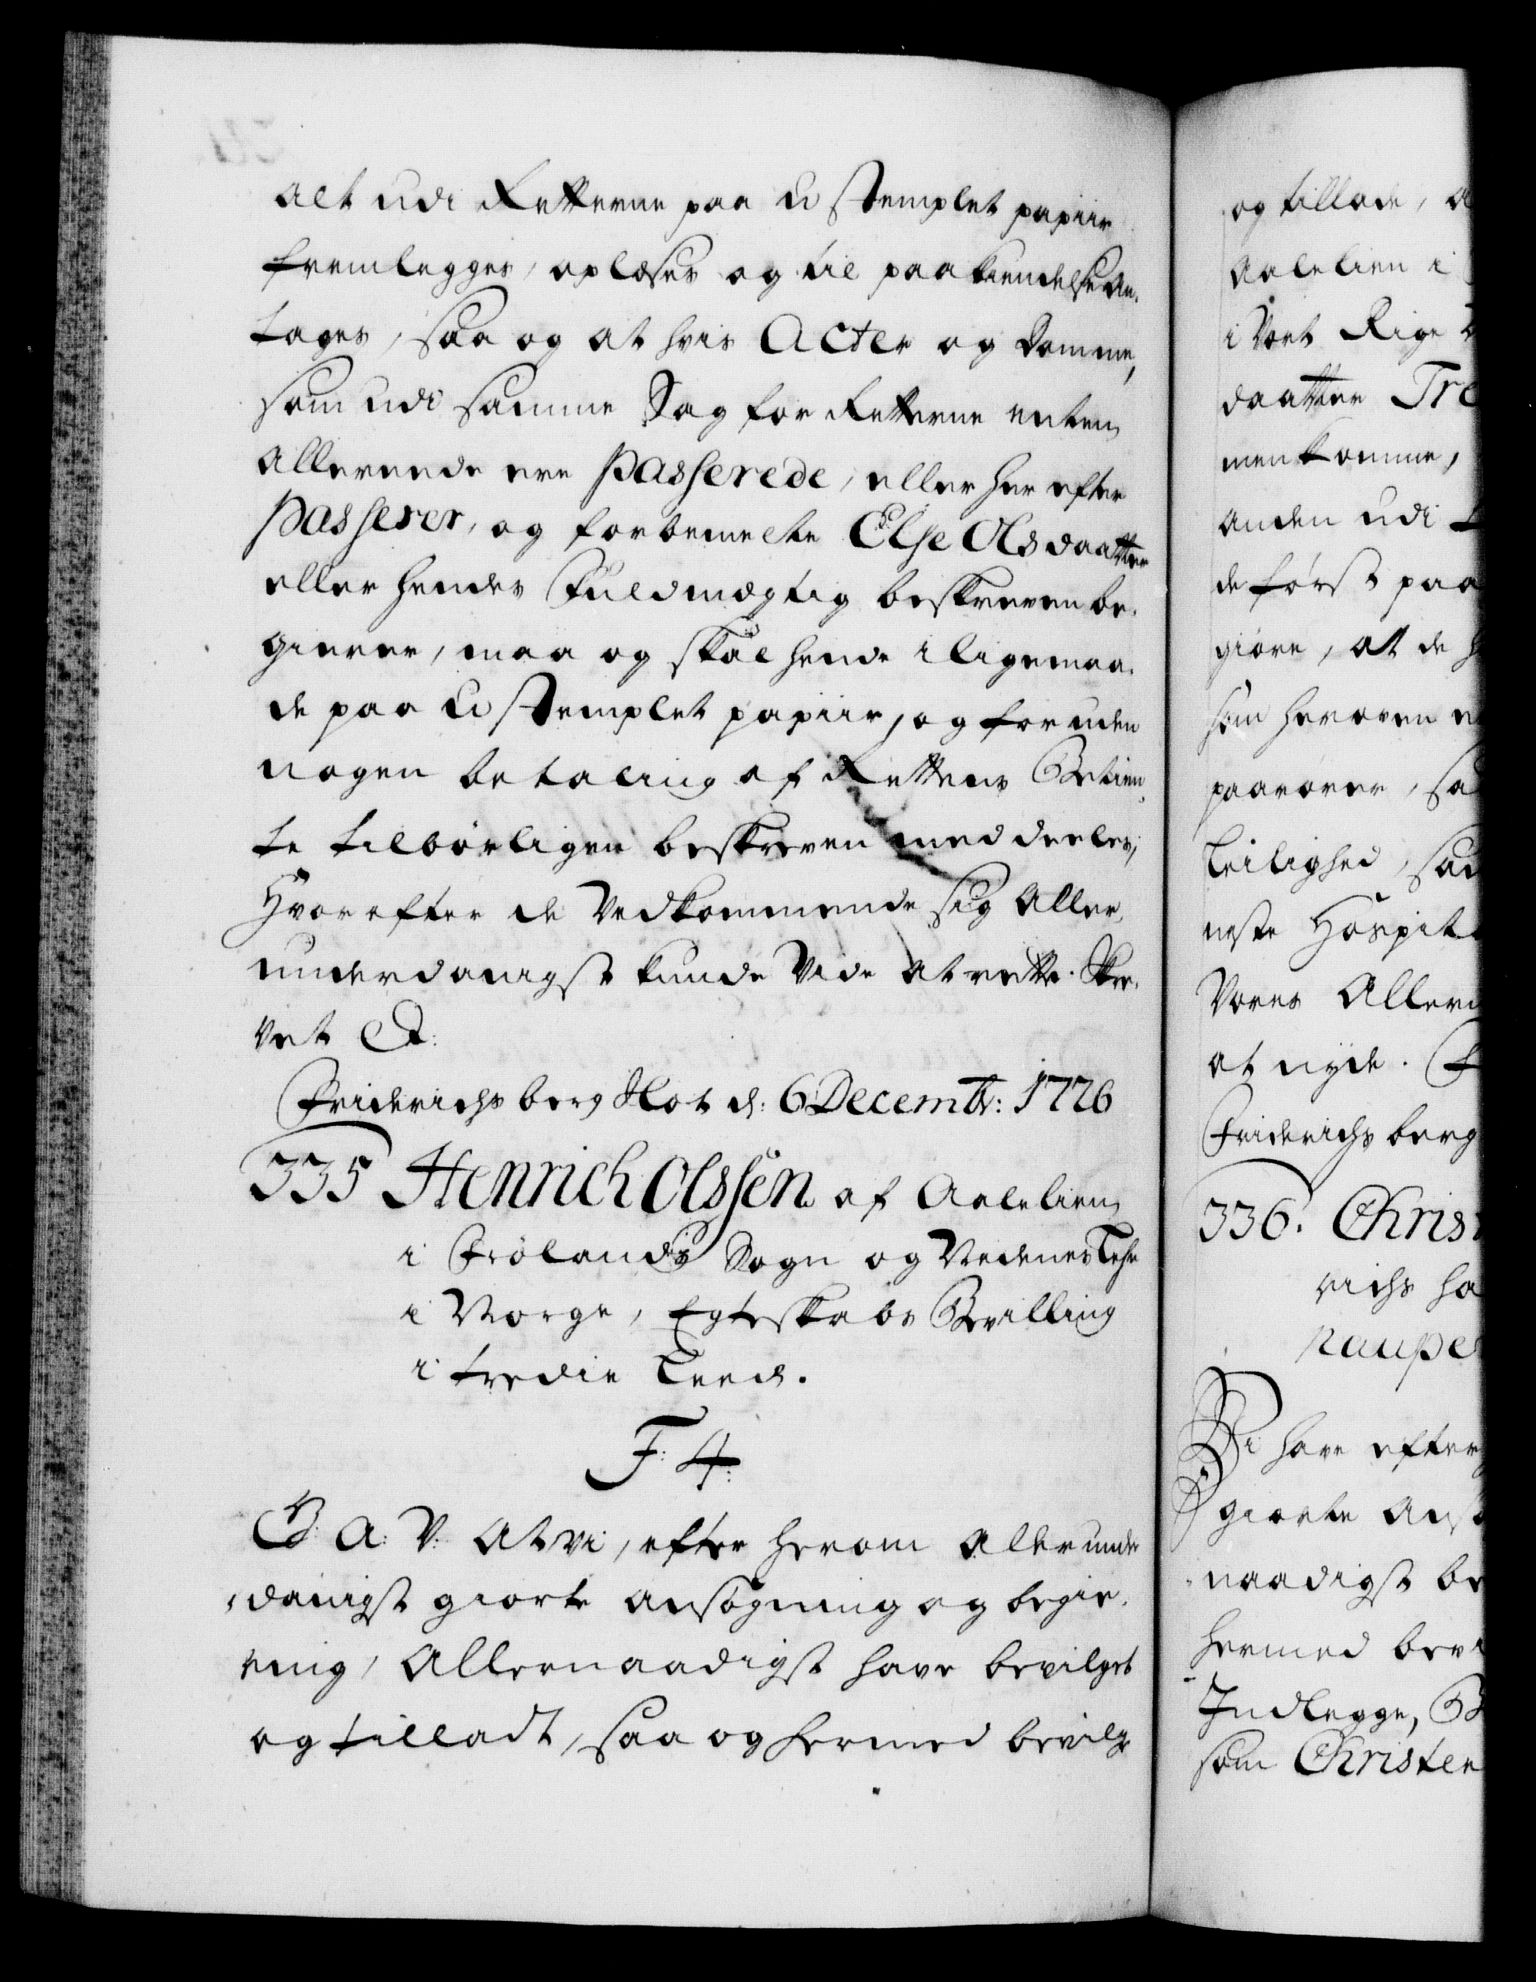 alt udi Retterne paa ustemplet papiir
fremlegges, oplæses og til paakiendelse an-
tages, saa og at hvis Acter og Domme,
som udi samme Sag for Retterne enten
allereede ere passerede, eller her efter
passerer, og forbemelte Else Olsdaatter
eller hendes Fuldmægtig beskreven be-
gierer, maa og skal hende i ligemaa-
de paa ustemplet papiir, og foruden
nogen betaling af Rettens Betien-
te tilbørligen beskreven meddeeles;
Hvorefter de Vedkommende sig aller-
underdanigst kunde Vide at rette. Skre-
vet &:
Friderichsberg Slot d: 6 Decembr: 1726
335 Henrich Olssen af Aalelien
i Frølands Sogn og Nedenes Lehn
i Norge, Egteskabs Bevilling
i tredie Leed.
F: 4:
G: A: V: at vi, efter herom allerunder-
danigst giorte ansøgning og begie-
ring, Allernaadigst have bevilget
og tilladt, saa og hermed bevilge
og tillade, a
Aalelien i
i Vort Rige
daatter Tre
menkomme,
anden udi
de først paa
giøre, at de h
som heroven
paarører, sa
Leilighed, saa
neste Hospita
Vores Allern
at nyde.
Friderichsberg
336. Christ
richs ha
paupe
Vi have efter
giorte ans
naadigst be
hermed bevi
Indlegge, B
som Christen